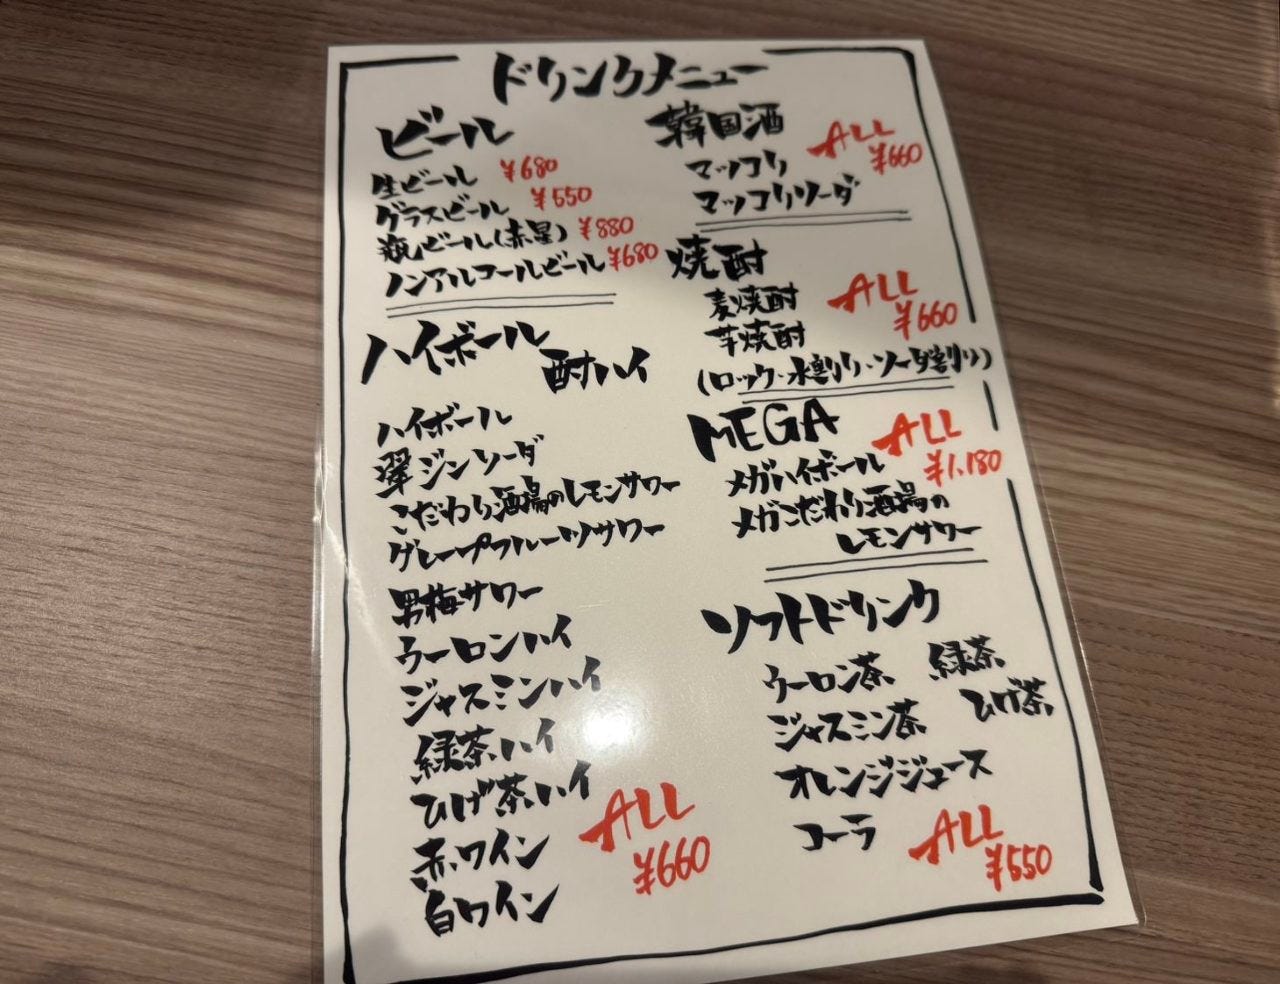 ドリンクメニュー
ビール
生ビール ¥680
グラスビール ¥550
瓶ビール(赤星) ¥880
ノンアルコールビール ¥680
ハイボール
酎ハイ
ハイボール
翠ジンソーダ
こだわり酒場のレモンサワー
グレープフルーツサワー
男梅サワー
ウーロンハイ
ジャスミンハイ
緑茶ハイ
ひげ茶ハイ
赤ワイン
白ワイン
ALL
¥660
韓国酒
ALL
¥660
マッコリ
マッコリソーダ
焼酎
麦焼酎
芋焼酎
ALL
¥660
(ロック・水割り・ソーダ割り)
MEGA
ALL
¥1,180
メガハイボール
メガこだわり酒場の
レモンサワー
ソフトドリンク
ウーロン茶 緑茶
ジャスミン茶 ひげ茶
オレンジジュース
コーラ
ALL
¥550